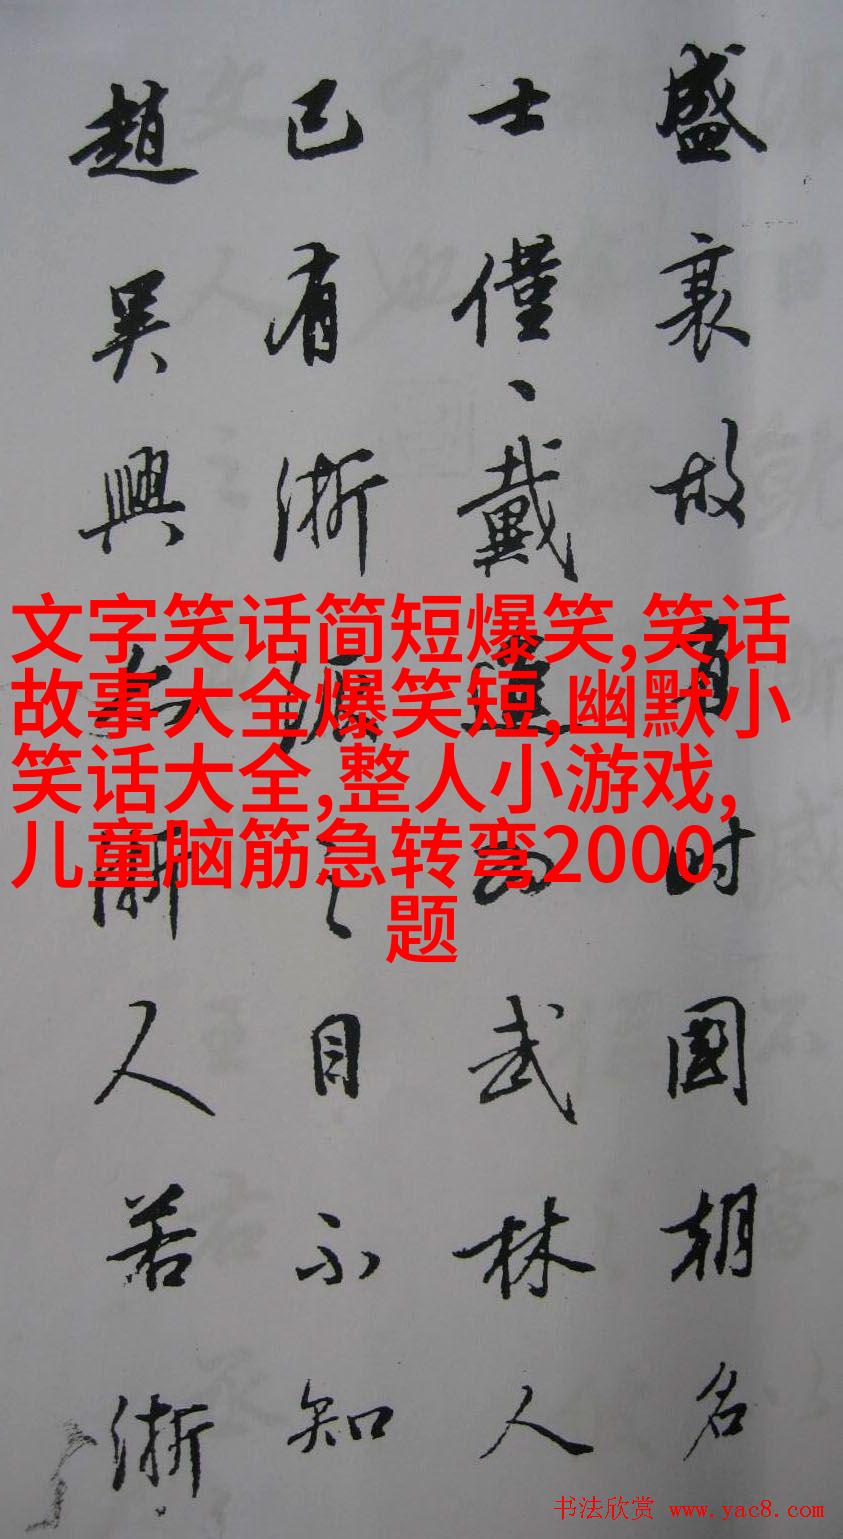 盛衰故有時國朝名
士僅、戴進為武林人
已有浙派之目不知
趙吳興亦浙人若浙
文字笑话简短爆笑,笑话
故事大全爆笑短,幽默小
笑话大全,整人小游戏,
儿童脑筋急转弯2000
题
书法欣赏 www.yac8.com